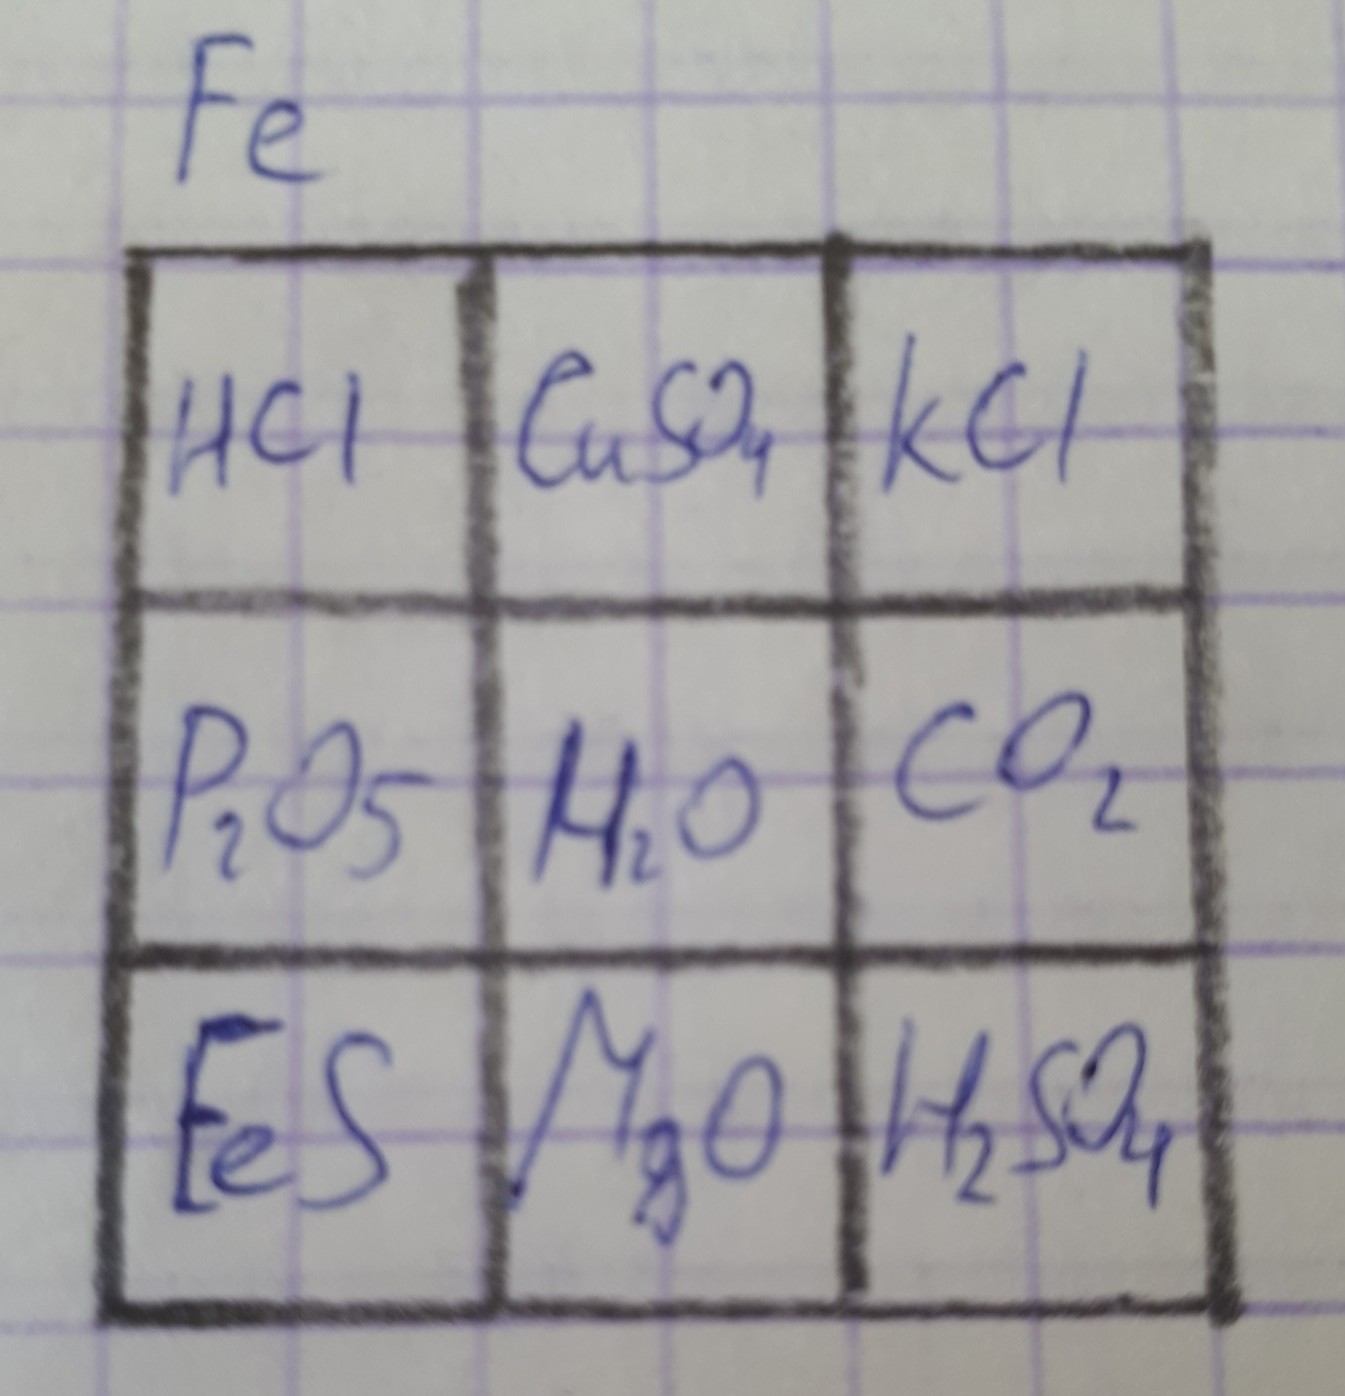 Fe
HCl CuSO₄ KCl
P₂O₅ H₂O CO₂
FeS MgO H₂SO₄